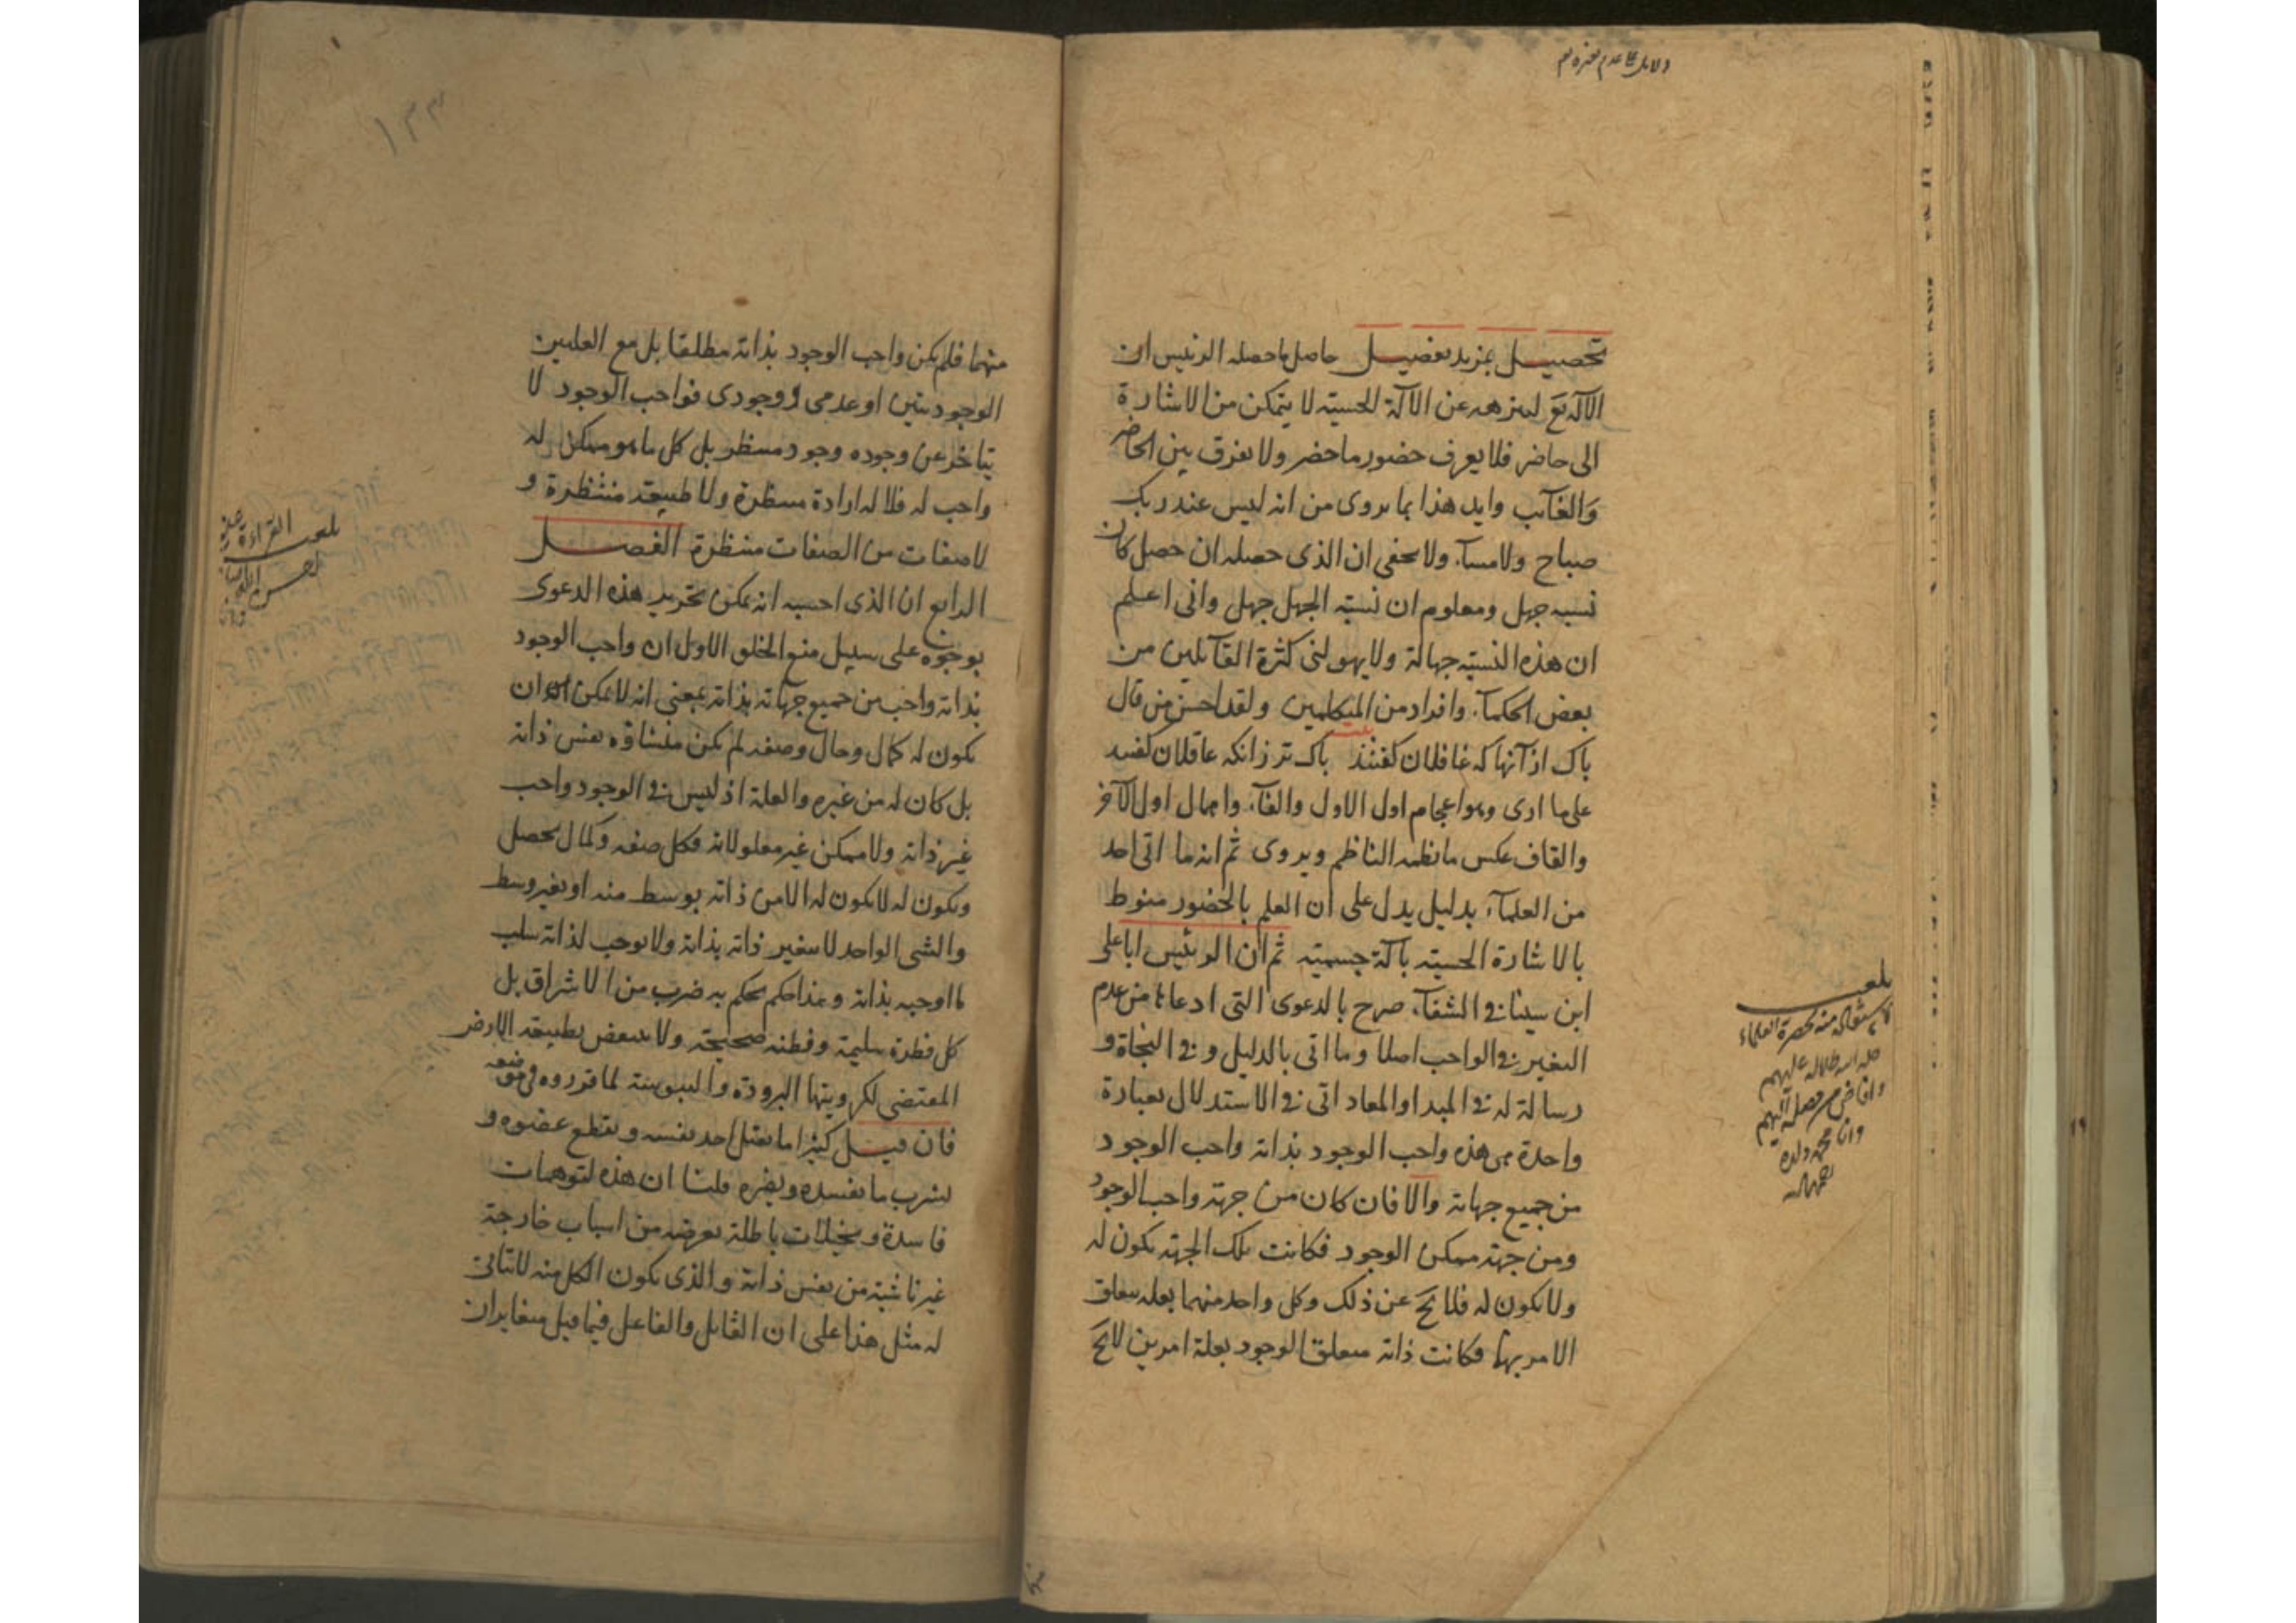 دلايل عدم تغيره
تحصيــل بمزيد تفصيــل حاصل ما حصله الرئيس ان
الاله تع لتنزهه عن الآلة الحسيته لا يتمكن من الاشارة
الى حاضر فلا يعرف حضور ما حضر ولا يفرق بين الحاضر
والغآئب وايد هذا بما يروى من انه ليس عند ربك
صباح ولا مسآء ولا يخفى ان الذى حصله ان حصل كان
نسبه جهل ومعلوم ان نسبته الجهل جهل وانى اعلم
ان هذه النسبته جهالة ولا يهولنى كثرة القآئلين من
بعض الحكمآء وافراد من المتكلمين ولقد احسن من قال
باك از آنها كه غافلان كفتند باك تر زانكه عاقلان كفتند
على ما ارى وهو اعجام اول الاول والفآء واهمال اول الآخر
والقاف عكس ما نظمه الناظم ويروى ثم انه ما اتى احد
من العلمآء بدليل يدل على ان العلم بالحضور منوط
بالاشارة الحسيته بآلة جسميته ثم ان الرئيس ابا على
ابن سينا فى الشفآء صرح بالدعوى التى ادعاها من عدم
التغير فى الواجب اصلا وما اتى بالدليل و فى النجاة و
رسالة له فى المبدا والمعاد اتى فى الاستدلال بعبارة
واحدة هى هذه واجب الوجود بذاته واجب الوجود
من جميع جهاته والا فان كان من جهته واجب الوجود
ومن جهته ممكن الوجود فكانت تلك الجهته تكون له
ولا تكون له فلا يخ عن ذلك وكل واحد منهما بعله يتعلق
الامر بها فكانت ذاته متعلق الوجود بعلة امرين لا يخ
بلغــ
١٣٣
منهما فلم يكن واجب الوجود بذاته مطلقا بل مع العلتين
الوجوديتين او عدمى ووجودى فواجب الوجود لا
يتاخر عن وجوده وجود منتظر بل كل ما هو ممكن له
واجب له فلا له ارادة منتظرة ولا طبيعة منتظرة و
لا صفات من الصفات منتظرة الفصــل
الرابع ان الذى احسبه انه يمكن تحرير هذه الدعوى
بوجوه على سبيل منع الخلو الاول ان واجب الوجود
بذاته واجب من جميع جهاته بذاته بمعنى انه لا يمكن ان
يكون له كمال وحال وصفه لم يكن منشاؤه نفس ذاته
بل كان له من غيره والعلة اذ ليس فى الوجود واجب
غير ذاته ولا ممكن غير معلولاته فكل صفه وكمال يحصل
ويكون له لا يكون له الا من ذاته بوسط منه او بغير وسط
والشى الواحد لا يتغير ذاته بذاته ولا يوجب لذاته سلب
ما اوجبه بذاته و هذا حكم يحكم به ضرب من الاشراق بل
كل فطرة سليمة وفطنه صحيحته ولا ينتقض بطبيعته الارض
المقتضى لكرويتها البرودة واليبوسته لما قرروه فى موضعه
فان قيــل كثيرا ما يقتل احد نفسه ويقطع عضوه و
يشرب ما يفسده ويضره قلنا ان هذه لتوهمات
فاسدة و تخيلات باطلة تعرضه من اسباب خارجة
غير ناشيته من نفس ذاته والذى يكون الكل منه لا يتاتى
له مثل هذا على ان القابل والفاعل فيما قيل متغايران
بلغــ القراءة